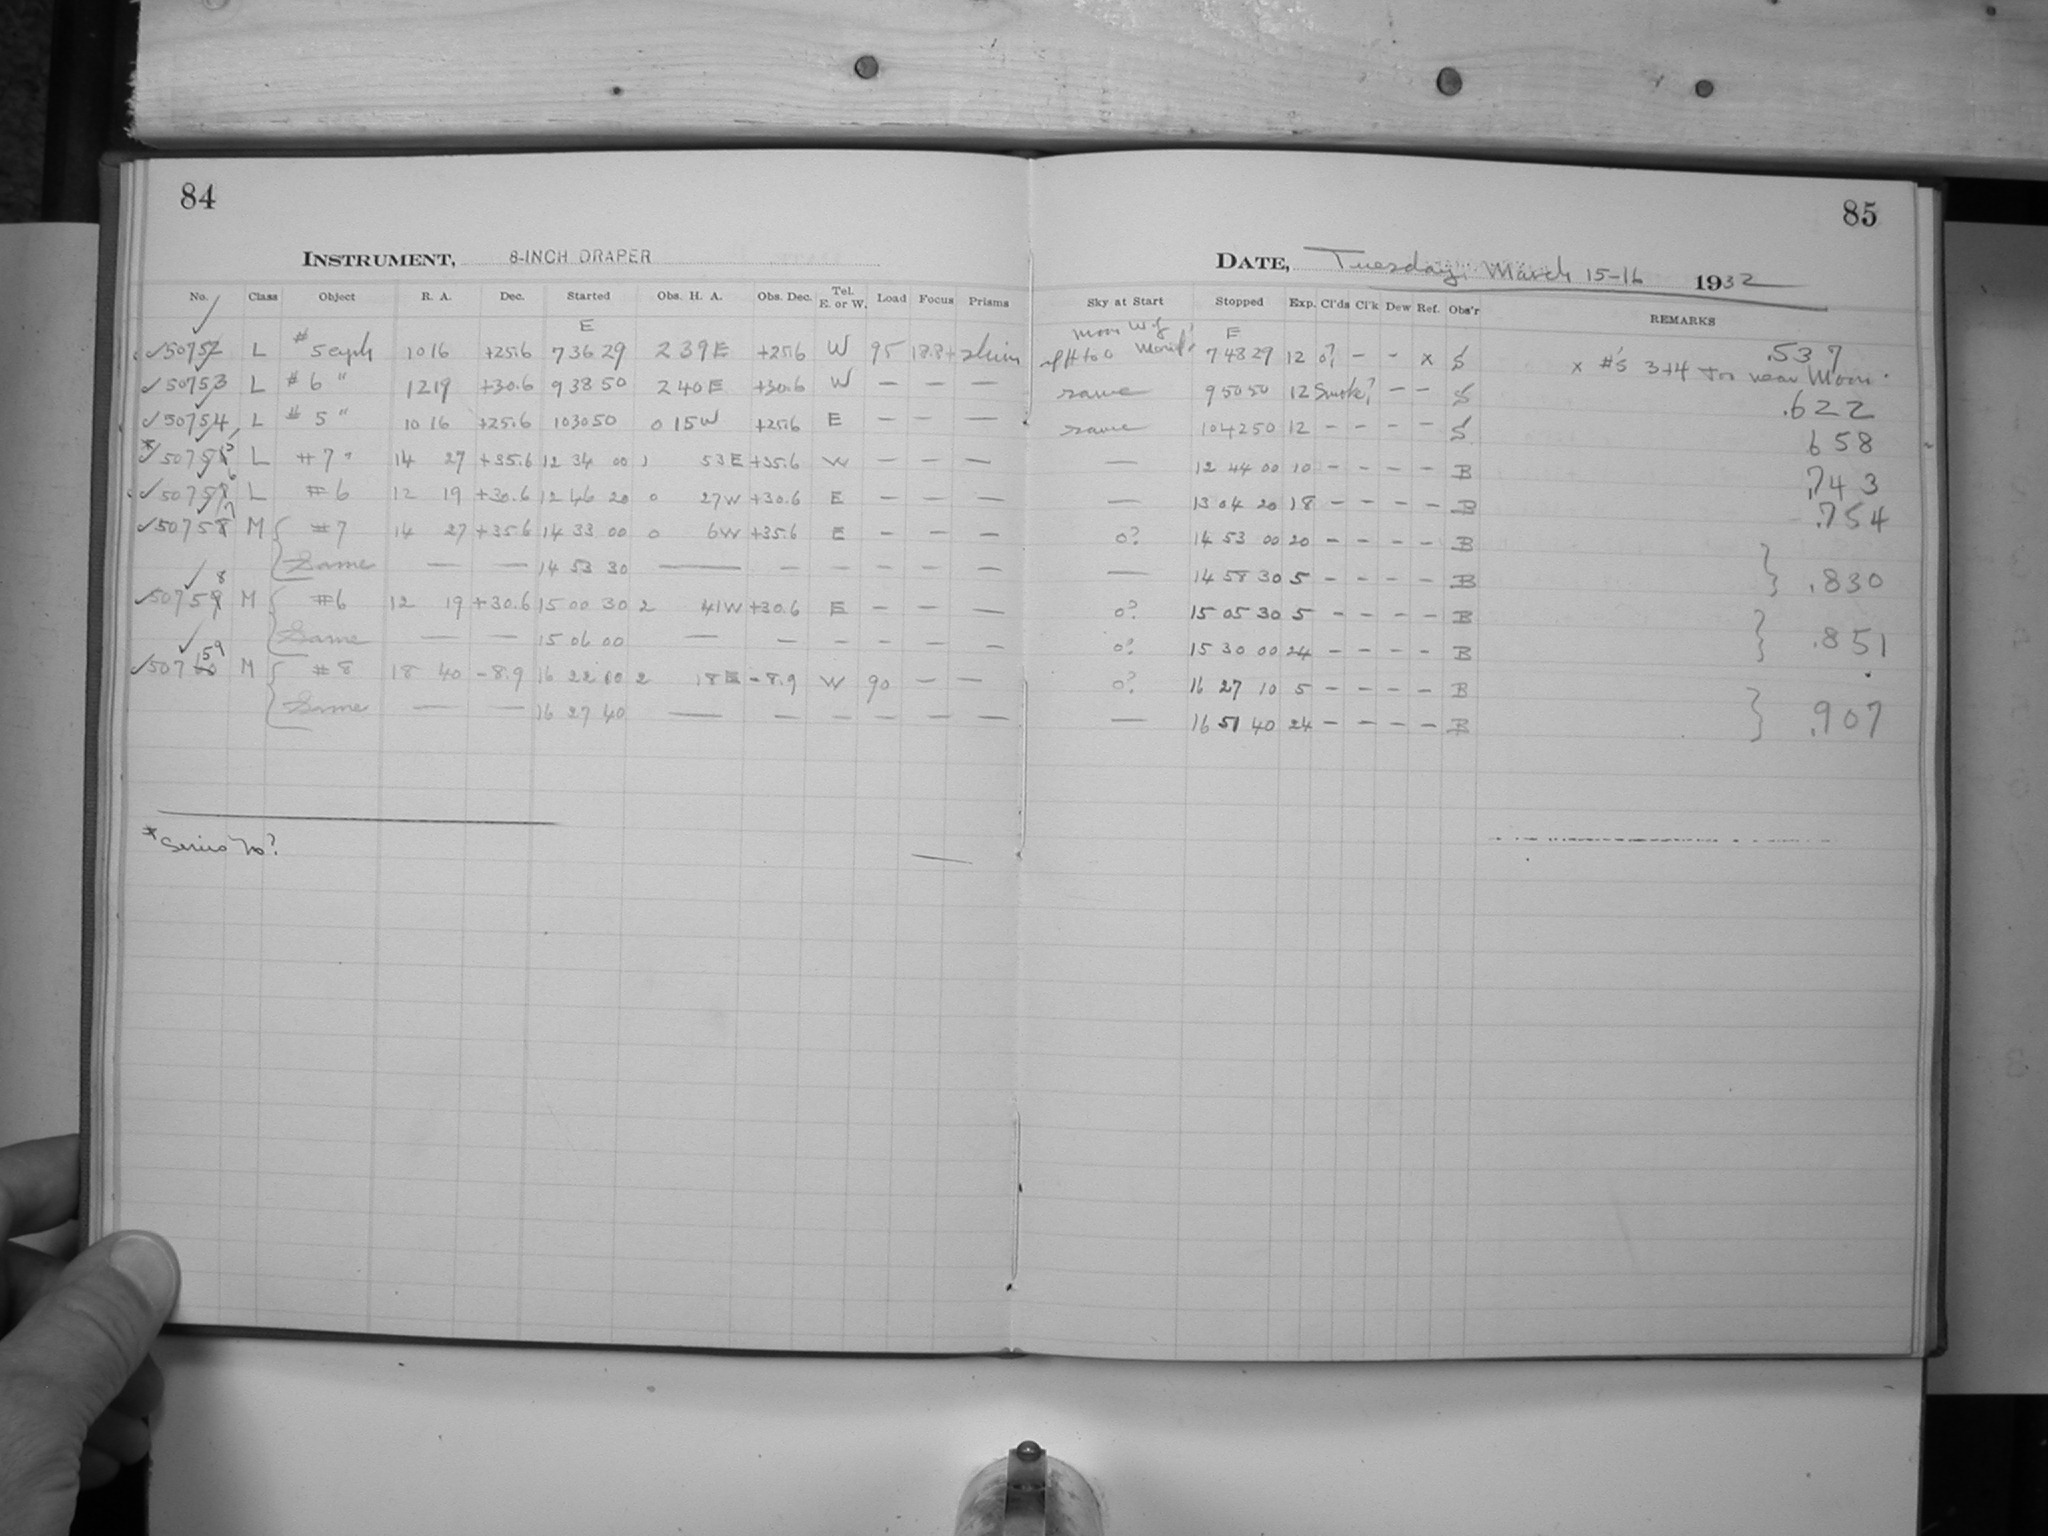 84
INSTRUMENT, 8-INCH DRAPER
No. Class Object R. A. Dec. Started Obs. H. A. Obs. Dec. Tel. E. or W. Load Focus Prisms
E
50752 L #5 ceph 10 16 +25.6 7 36 29 2 39 E +25.6 W 95 18.8+
50753 L #6 " 12 19 +30.6 9 38 50 2 40 E +30.6 W — — —
50754 L #5 " 10 16 +25.6 10 30 50 0 15 W +25.6 E — — —
*50755 L #7 " 14 27 +35.6 12 34 00 1 53 E +35.6 W — — —
50756 L #6 12 19 +30.6 12 46 20 0 27 W +30.6 E — — —
50757 M { #7 14 27 +35.6 14 33 00 0 6 W +35.6 E — — —
Same — — 14 53 30 — — — — — —
50758 M { #6 12 19 +30.6 15 00 30 2 41 W +30.6 E — — —
Same — — 15 06 00 — — — — — —
50759 M { #8 18 40 -8.9 16 22 10 2 18 E -8.9 W 90 — —
Same — — 16 27 40 — — — — — —
*Series No?
85
DATE, Tuesday, March 15-16 1932
Sky at Start Stopped Exp. Cl'ds Cl'k Dew Ref. Obs'r REMARKS
Moon W of E
7 48 29 12 0? — — x S x #'s 3+4 too near Moon. .537
same 9 50 50 12 Smoke? — — S .622
same 10 42 50 12 — — — — S 658
— 12 44 00 10 — — — — B .743
— 13 04 20 18 — — — — B .754
0? 14 53 00 20 — — — — B
— 14 58 30 5 — — — — B } .830
0? 15 05 30 5 — — — — B
0? 15 30 00 24 — — — — B } .851
0? 16 27 10 5 — — — — B
— 16 51 40 24 — — — — B } .907